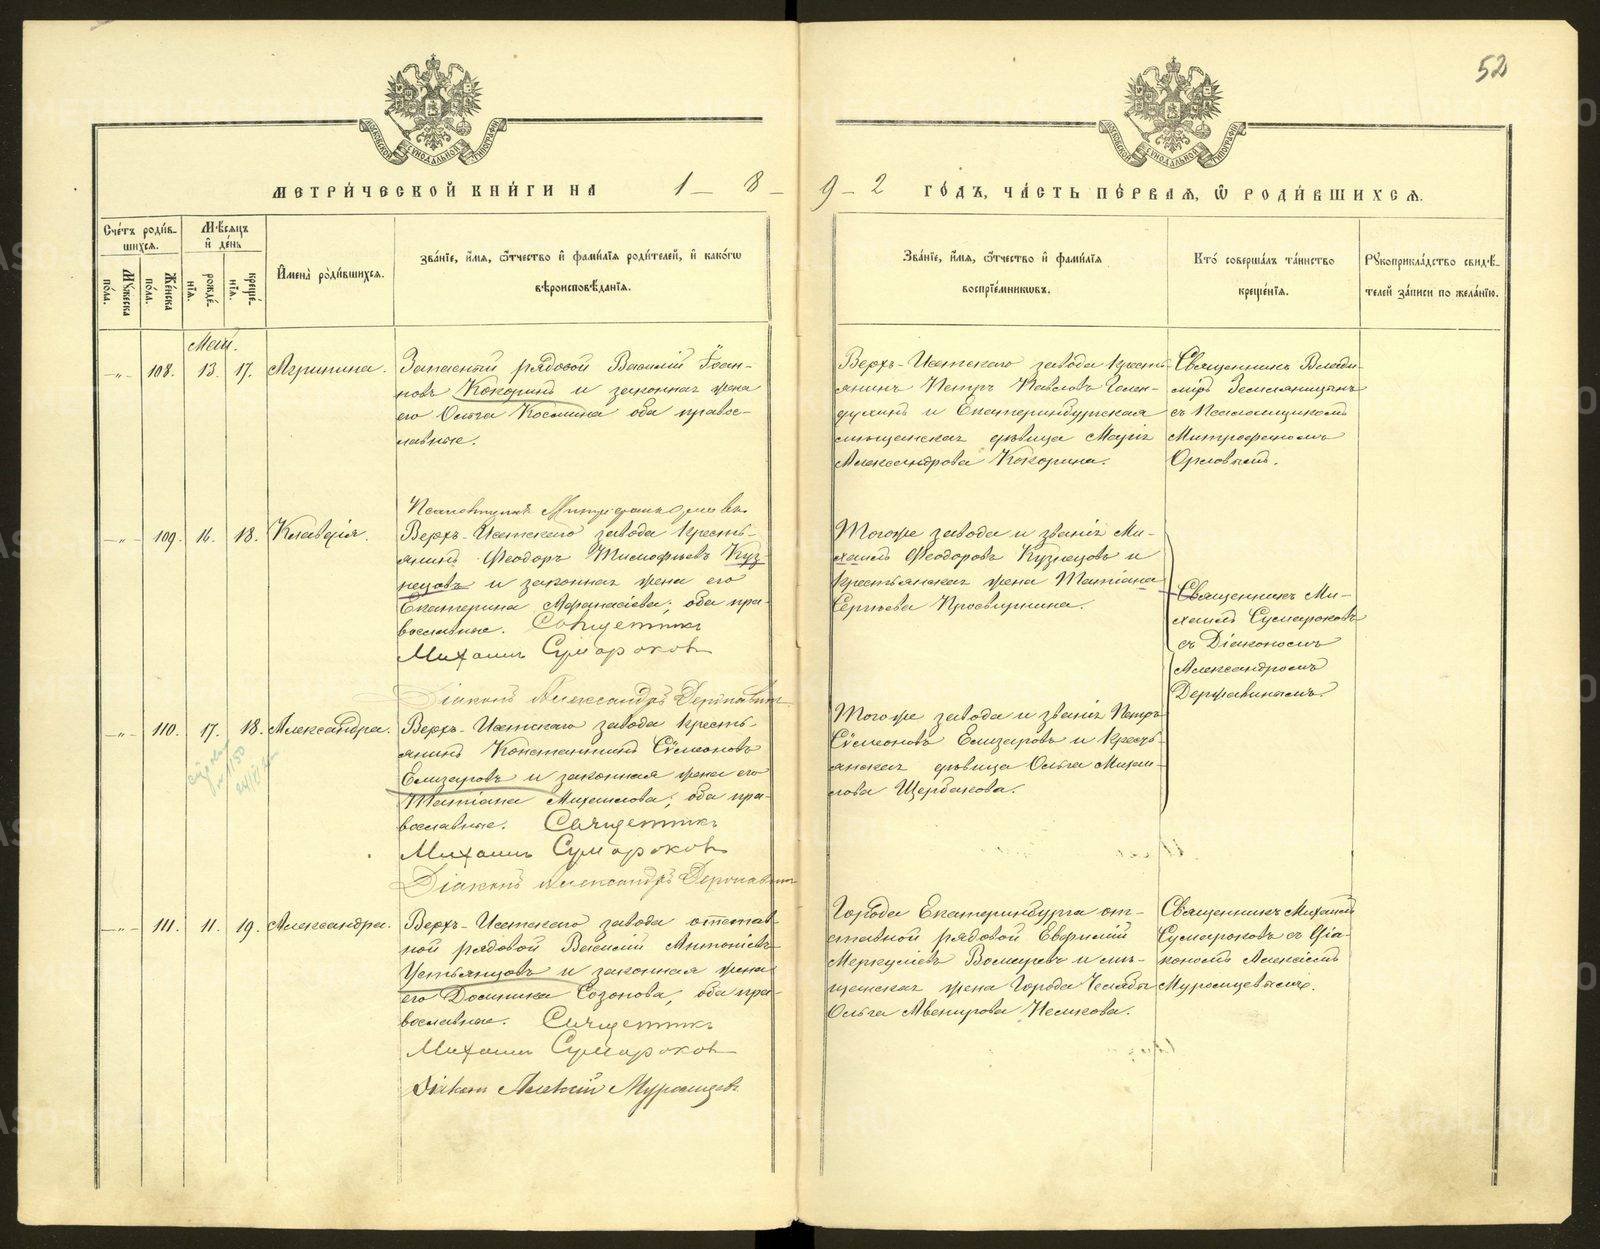 52
МОСКОВСКОЙ СѴНОДАЛЬНОЙ ТИПОГРАФІИ
МОСКОВСКОЙ СѴНОДАЛЬНОЙ ТИПОГРАФІИ
МЕТРИ́ЧЕСКОЙ КНИ́ГИ НА 1 – 8 – 9 – 2 ГО́ДЪ, ЧА́СТЬ ПЕ́РВАЯ, Ѿ РОДИ́ВШИХСЯ.
Сче́тъ роди́в-
шихся.
Мꙋжеска по́ла.
Же́нска по́ла.
Мѣ́сяцъ и҆ де́нь
рожде́-
нїя.
креще́-
нїя.
И҆мена̀ роди́вшихся.
Зва́нїе, и҆́мя, ѻ҆́тчество и҆ фами́лїя роди́телей, и҆ како́гѡ
вѣроисповѣ́данїя.
Зва́нїе, и҆́мя, ѻ҆́тчество и҆ фами́лїя
воспрїе́мникѡвъ.
Кто̀ соверша́лъ та́инство
креще́нїя.
Рꙋкоприкла́дство свидѣ́-
телей за́писи по жела́нїю.
Май.
–„– 108. 13. 17. Агрипина.
Запасный рядовой Василій Іоан-
новъ Кокоринъ и законная жена
его Ольга Космина оба правос-
лавные.
Верхъ-Исетскаго завода кресть-
янинъ Петръ Павловъ Голен-
духинъ и Екатеринбургская
мѣщанская дѣвица Марія
Александрова Кокорина.
Священникъ Влади-
миръ Земляницынъ
съ Псаломщикомъ
Митрофаномъ
Орловымъ.
Псаломщикъ Митрофанъ Орловъ
–„– 109. 16. 18. Клавдія.
Верхъ-Исетскаго завода кресть-
янинъ Ѳеодоръ Тимофѣевъ Куз-
нецовъ и законная жена его
Екатерина Афанасіева; оба пра-
вославные. Священникъ
Михаилъ Сумароковъ
Діаконъ Александръ Державинъ
Тогоже завода и званія Ми-
хаилъ Ѳеодоровъ Кузнецовъ и
крестьянская жена Татіана
Сергѣева Просвирнина.
Священникъ Ми-
хаилъ Сумароковъ
съ Діакономъ
Александромъ
Державинымъ.
–„– 110. 17. 18. Александра.
Верхъ-Исетскаго завода кресть-
янинъ Константинъ Сѵмеоновъ
Елизаровъ и законная жена его
Татіана Михаилова; оба пра-
вославные. Священникъ
Михаилъ Сумароковъ
Діаконъ Александръ Державинъ
№ 1150
Тогоже завода и званія Петръ
Сѵмеоновъ Елизаровъ и кресть-
янская дѣвица Ольга Михаи-
лова Щербакова.
–„– 111. 11. 19. Александра.
Верхъ-Исетскаго завода отстав-
ной рядовой Василій Антоніевъ
Устьянцовъ и законная жена
его Домника Созонова, оба пра-
вославные. Священникъ
Михаилъ Сумароковъ
Діаконъ Алексій Муромцевъ
Города Екатеринбурга от-
ставной рядовой Евфимій
Меркуліевъ и мѣ-
щанская жена Города Челябы
Ольга Авенирова
Священникъ Михаилъ
Сумароковъ съ Діа-
кономъ Алексіемъ
Муромцевымъ.